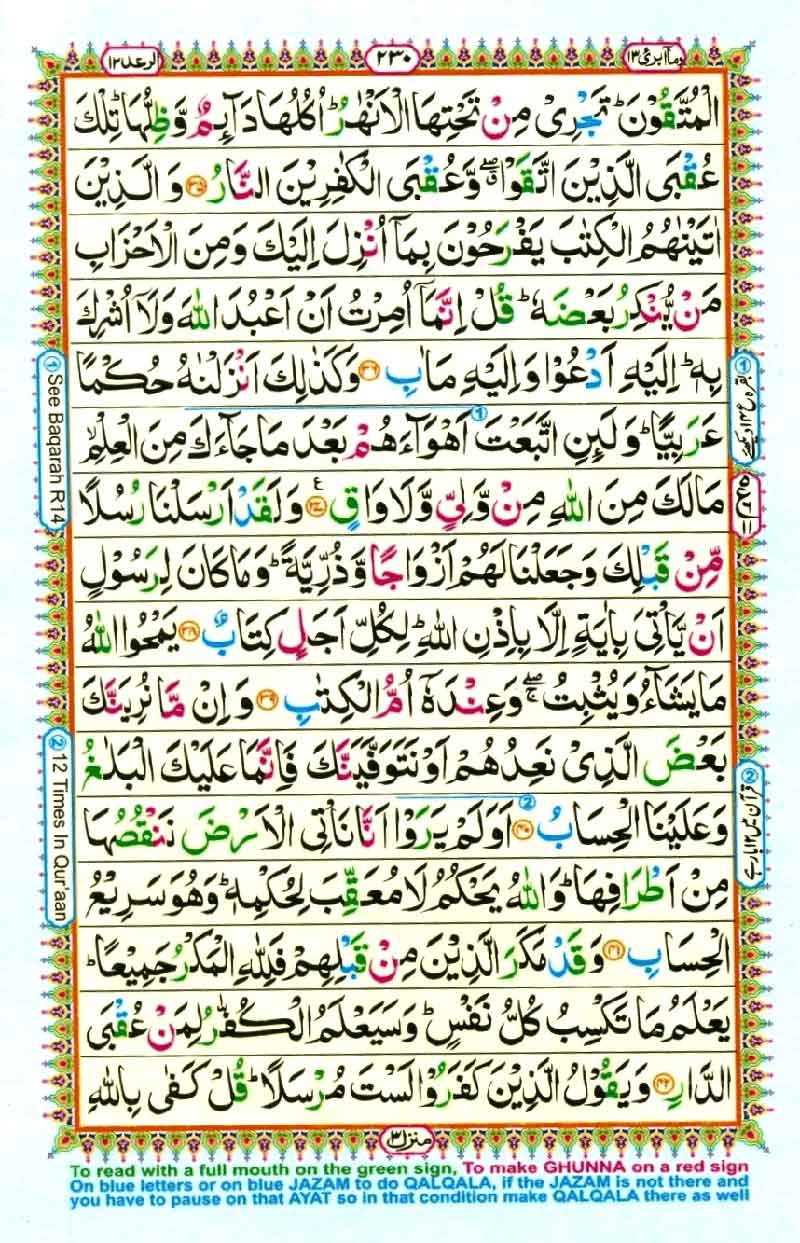 الرعد ١٣
٢٣٠
وما ابرئ ١٣
الْمُتَّقُوْنَ ؕ تَجْرِیْ مِنْ تَحْتِهَا الْاَنْهٰرُ ؕ اُكُلُهَا دَآىِٕمٌ وَّ ظِلُّهَا ؕ تِلْكَ
عُقْبَی الَّذِیْنَ اتَّقَوْا ۖۗ وَّ عُقْبَی الْكٰفِرِیْنَ النَّارُ ۝۳۵ وَ الَّذِیْنَ
اٰتَیْنٰهُمُ الْكِتٰبَ یَفْرَحُوْنَ بِمَاۤ اُنْزِلَ اِلَیْكَ وَ مِنَ الْاَحْزَابِ
مَنْ یُّنْكِرُ بَعْضَهٗ ؕ قُلْ اِنَّمَاۤ اُمِرْتُ اَنْ اَعْبُدَ اللّٰهَ وَ لَاۤ اُشْرِكَ
بِهٖ ؕ اِلَیْهِ اَدْعُوْا وَ اِلَیْهِ مَاٰبِ ۝۳۶ وَ كَذٰلِكَ اَنْزَلْنٰهُ حُكْمًا
عَرَبِیًّا ؕ وَ لَىِٕنِ اتَّبَعْتَ ① اَهْوَآءَهُمْ بَعْدَ مَا جَآءَكَ مِنَ الْعِلْمِ ۙ
مَا لَكَ مِنَ اللّٰهِ مِنْ وَّلِیٍّ وَّ لَا وَاقٍ ۝۳۷ ع وَ لَقَدْ اَرْسَلْنَا رُسُلًا
مِّنْ قَبْلِكَ وَ جَعَلْنَا لَهُمْ اَزْوَاجًا وَّ ذُرِّیَّةً ؕ وَ مَا كَانَ لِرَسُوْلٍ
اَنْ یَّاْتِیَ بِاٰیَةٍ اِلَّا بِاِذْنِ اللّٰهِ ؕ لِكُلِّ اَجَلٍ كِتَابٌ ۝۳۸ یَمْحُوا اللّٰهُ
مَا یَشَآءُ وَ یُثْبِتُ ۖۚ وَ عِنْدَهٗۤ اُمُّ الْكِتٰبِ ۝۳۹ وَ اِنْ مَّا نُرِیَنَّكَ
بَعْضَ الَّذِیْ نَعِدُهُمْ اَوْ نَتَوَفَّیَنَّكَ فَاِنَّمَا عَلَیْكَ الْبَلٰغُ
وَ عَلَیْنَا الْحِسَابُ ۝۴۰ ② اَوَ لَمْ یَرَوْا اَنَّا نَاْتِی الْاَرْضَ نَنْقُصُهَا
مِنْ اَطْرَافِهَا ؕ وَ اللّٰهُ یَحْكُمُ لَا مُعَقِّبَ لِحُكْمِهٖ ؕ وَ هُوَ سَرِیْعُ
الْحِسَابِ ۝۴۱ وَ قَدْ مَكَرَ الَّذِیْنَ مِنْ قَبْلِهِمْ فَلِلّٰهِ الْمَكْرُ جَمِیْعًا ؕ
یَعْلَمُ مَا تَكْسِبُ كُلُّ نَفْسٍ ؕ وَ سَیَعْلَمُ الْكُفّٰرُ لِمَنْ عُقْبَی
الدَّارِ ۝۴۲ وَ یَقُوْلُ الَّذِیْنَ كَفَرُوْا لَسْتَ مُرْسَلًا ؕ قُلْ كَفٰی بِاللّٰهِ
① See Baqarah R14
② 12 Times In Qur'aan
② قرآن میں ۱۲ بار ہے
منزل ٣
To read with a full mouth on the green sign, To make GHUNNA on a red sign
On blue letters or on blue JAZAM to do QALQALA, if the JAZAM is not there and
you have to pause on that AYAT so in that condition make QALQALA there as well